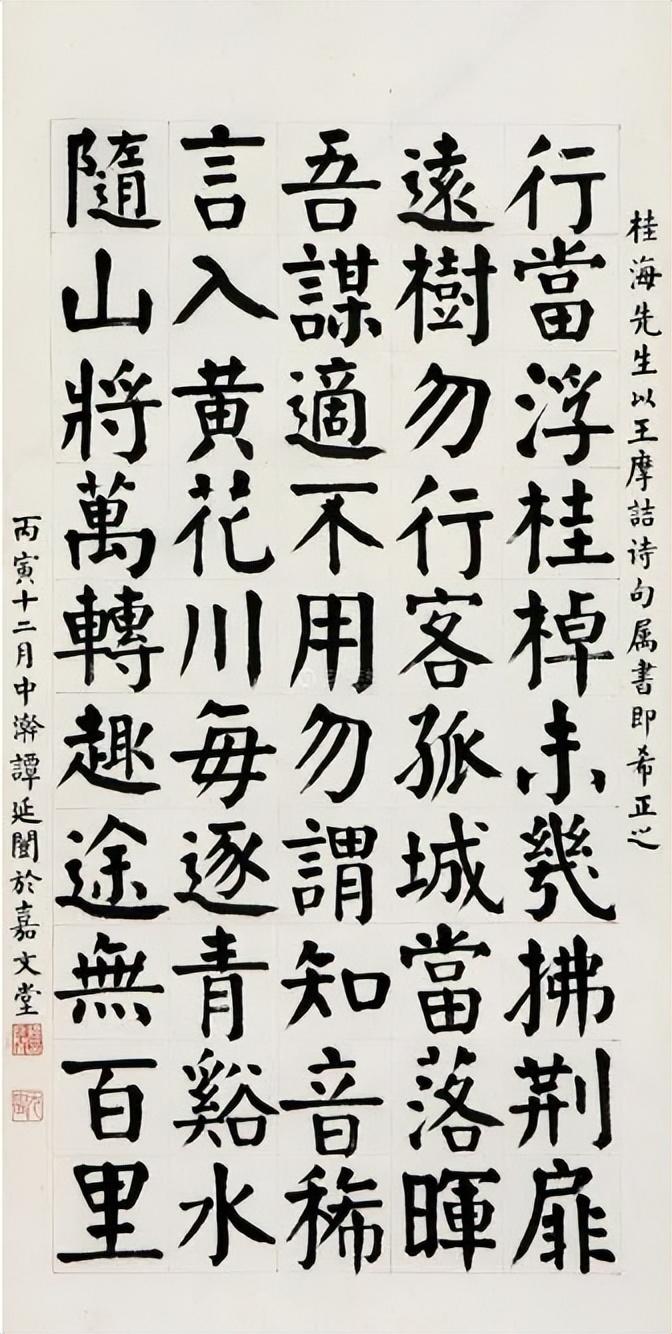 桂海先生以王摩詰诗句属書即希正之
行當浮桂棹未幾拂荆扉
遠樹勿行客孤城當落暉
吾謀適不用勿謂知音稀
言入黄花川每逐青谿水
隨山將萬轉趣途無百里
丙寅十二月中澣譚延闓於嘉文堂